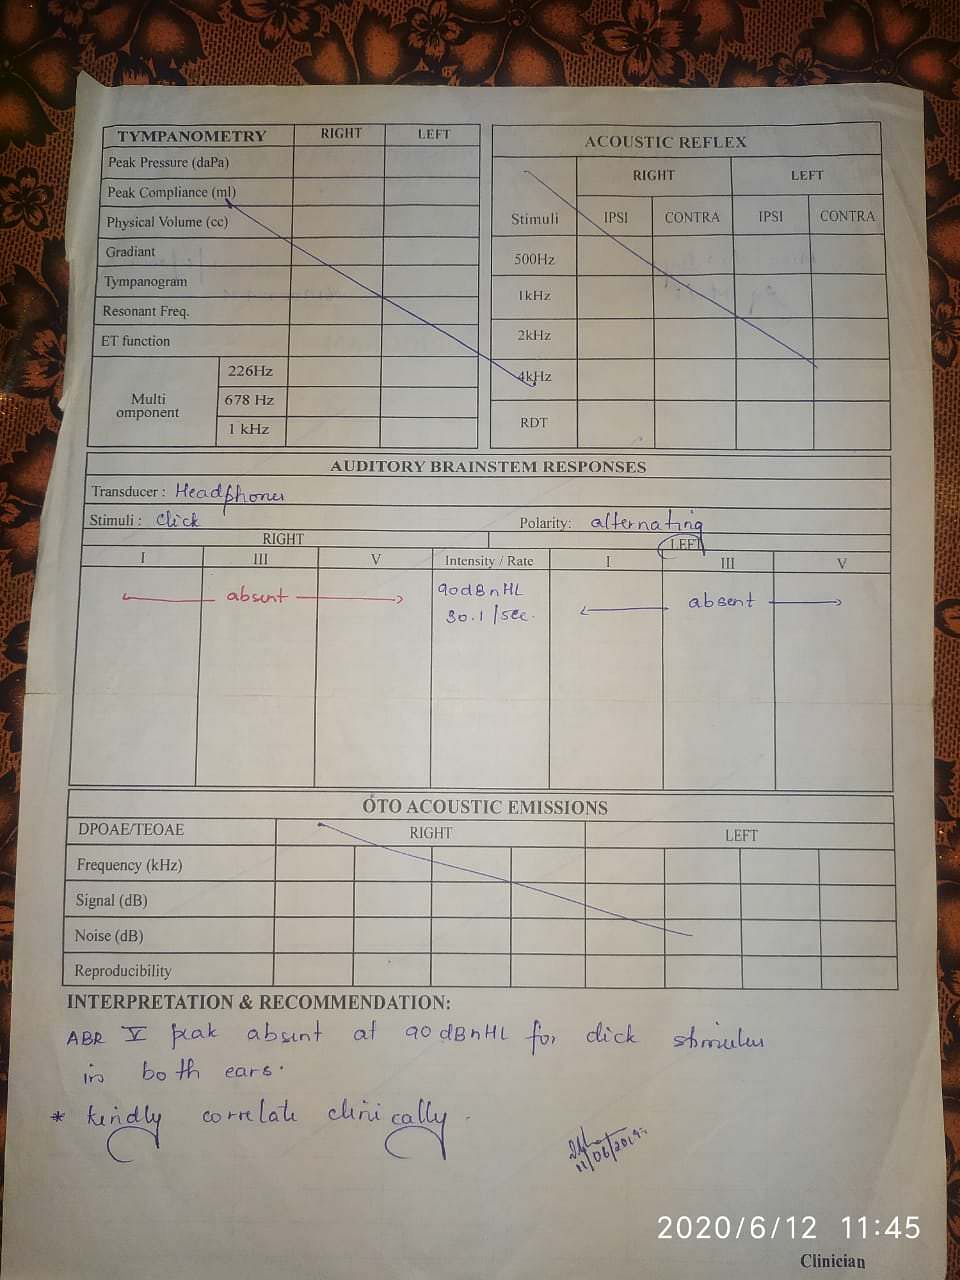 TYMPANOMETRY RIGHT LEFT
Peak Pressure (daPa)
Peak Compliance (ml)
Physical Volume (cc)
Gradiant
Tympanogram
Resonant Freq.
ET function
Multi omponent
226Hz
678 Hz
1 kHz
ACOUSTIC REFLEX
RIGHT LEFT
Stimuli IPSI CONTRA IPSI CONTRA
500Hz
1kHz
2kHz
4kHz
RDT
AUDITORY BRAINSTEM RESPONSES
Transducer : Headphones
Stimuli : Click Polarity: alternating
RIGHT LEFT
I III V Intensity / Rate I III V
absent 90dBnHL absent
30.1/sec.
OTO ACOUSTIC EMISSIONS
DPOAE/TEOAE RIGHT LEFT
Frequency (kHz)
Signal (dB)
Noise (dB)
Reproducibility
INTERPRETATION & RECOMMENDATION:
ABR V peak absent at 90 dBnHL for click stimulus
in both ears.
* Kindly correlate clinically.
11/06/2019
2020/6/12 11:45
Clinician